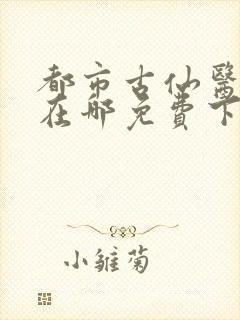 都市古仙醫
在哪免費下
小雏菊